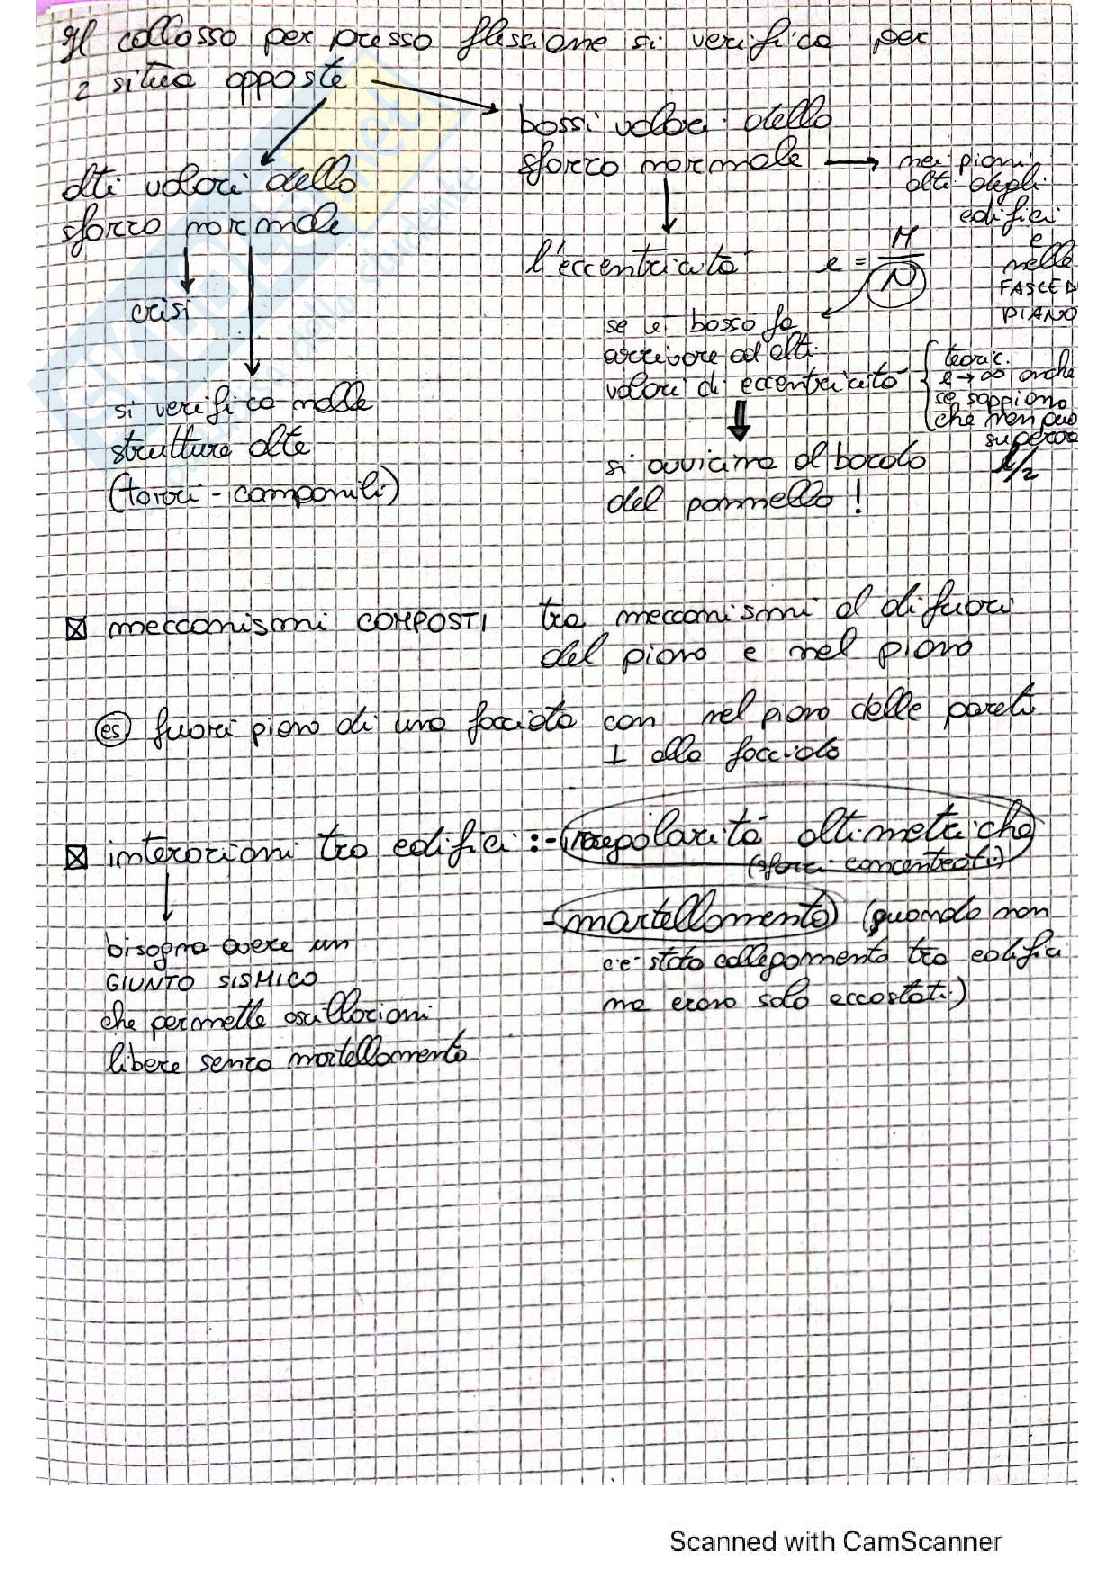 Il collasso per presso flessione si verifica per
2 situa opposte
bassi valori dello
sforzo normale → nei piani
alti degli
edifici
e
nelle
FASCE DI
PIANO
alti valori dello
sforzo normale
crisi
si verifica nelle
strutture alte
(torri - campanili)
l'eccentricità e = M
N
se è basso fa
arrivare ad alti
valori di eccentricità
teoric.
e → ∞ anche
se sappiamo
che non può
superare
l/2
si avvicina al bordo
del pannello !
☒ meccanismi COMPOSTI tra meccanismi al di fuori
del piano e nel piano
(es) fuori piano di una facciata con nel piano delle pareti
⊥ alla facciata
☒ interazioni tra edifici : - irregolarità altimetriche
(sforzi concentrati)
- martellamento (quando non
c'è stato collegamento tra edifici
ma erano solo accostati)
bisogna avere un
GIUNTO SISMICO
che permette oscillazioni
libere senza martellamento
Scanned with CamScanner